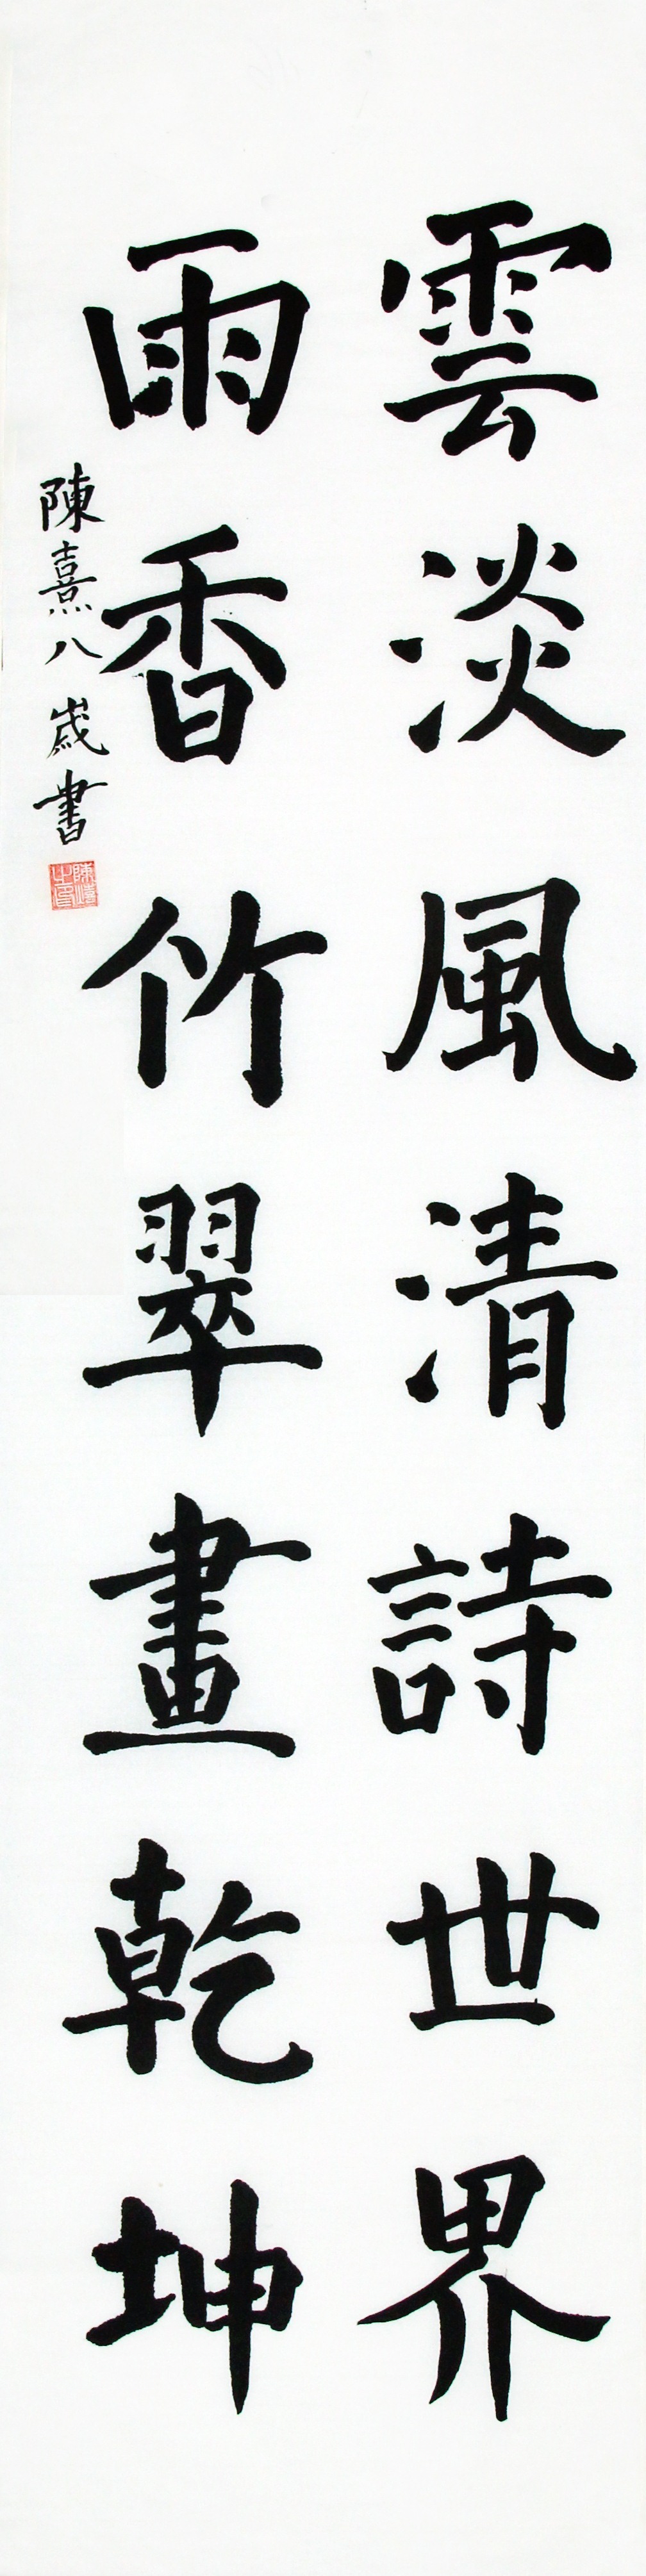 雲淡風清詩世界
雨香竹翠畫乾坤
陳熹八歲書